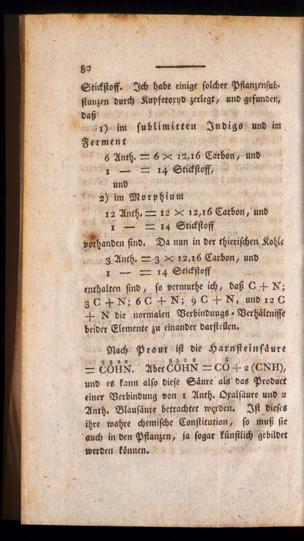 80
Stickstoff. Ich habe einige solcher Pflanzensub-
stanzen durch Kupferoxyd zerlegt, und gefunden,
daß
1) im sublimirten Indigo und im
Ferment
6 Anth. = 6 × 12,16 Carbon, und
1 — = 14 Stickstoff,
und
2) im Morphium
12 Anth. = 12 × 12,16 Carbon, und
1 — = 14 Stickstoff
vorhanden sind. Da nun in der thierischen Kohle
3 Anth. = 3 × 12,16 Carbon, und
1 — = 14 Stickstoff
enthalten sind, so vermuthe ich, daß C + N;
3 C + N; 6 C + N; 9 C + N, und 12 C
+ N die normalen Verbindungs-Verhältnisse
beider Elemente zu einander darstellen.
Nach Prout ist die Harnsteinsäure
= COHN. Aber COHN = CO + 2 (CNH),
und es kann also diese Säure als das Product
einer Verbindung von 1 Anth. Oxalsäure und 2
Anth. Blausäure betrachtet werden. Ist dieses
ihre wahre chemische Constitution, so muß sie
auch in den Pflanzen, ja sogar künstlich gebildet
werden können.